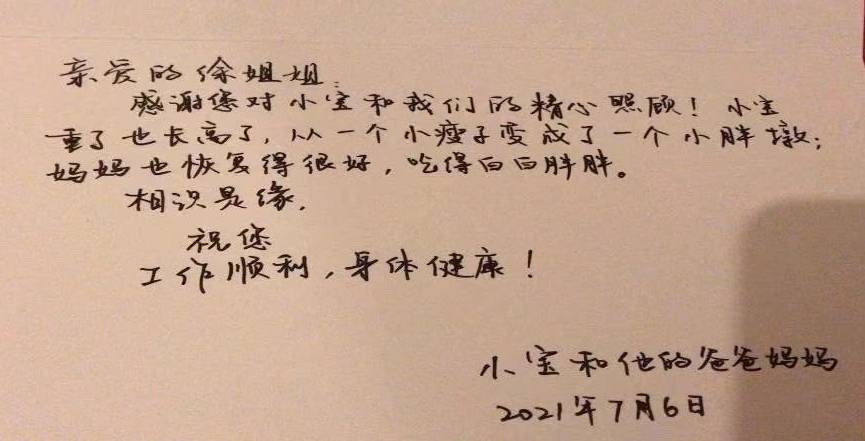 亲爱的徐姐姐:
感谢您对小宝和我们的精心照顾！小宝
重了也长高了，从一个小瘦子变成了一个小胖墩；
妈妈也恢复得很好，吃得白白胖胖。
相识是缘，
祝您
工作顺利，身体健康！
小宝和他的爸爸妈妈
2021年7月6日